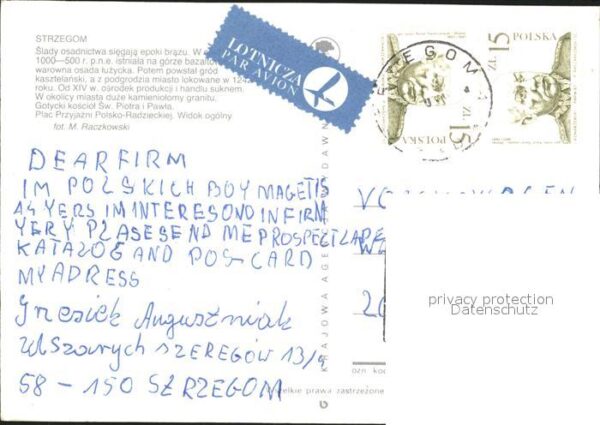 STRZEGOM
Ślady osadnictwa sięgają epoki brązu. W o
1000—500 r. p.n.e. istniała na górze bazalto
warowna osada łużycka. Potem powstał gród
kasztelański, a z podgrodzia miasto lokowane w 124
roku. Od XIV w. ośrodek produkcji i handlu suknem.
W okolicy miasta duże kamieniołomy granitu.
Gotycki kościół Św. Piotra i Pawła.
Plac Przyjaźni Polsko-Radzieckiej. Widok ogólny
fot. M. Raczkowski
LOTNICZA
PAR AVION
STRZEGOM
POLSKA
15 ZŁ
POLSKA
15 ZŁ
DEAR FIRM
IM POLSKICH BOY MAGETIS
14 YERS IM INTERESOND IN FIRM
YERY PLASE SEND ME PROSPECT LAPE
KATALOG AND POS-CARD
MY ADRESS
Gresiek Augustniak
ul Szarych SZEREGÓW 13/4
58 - 150 SZRZEGOM
KRAJOWA AGE
DAWN
VO
W
20
ozn kod
elkie prawa zastrzeżone
privacy protection
Datenschutz